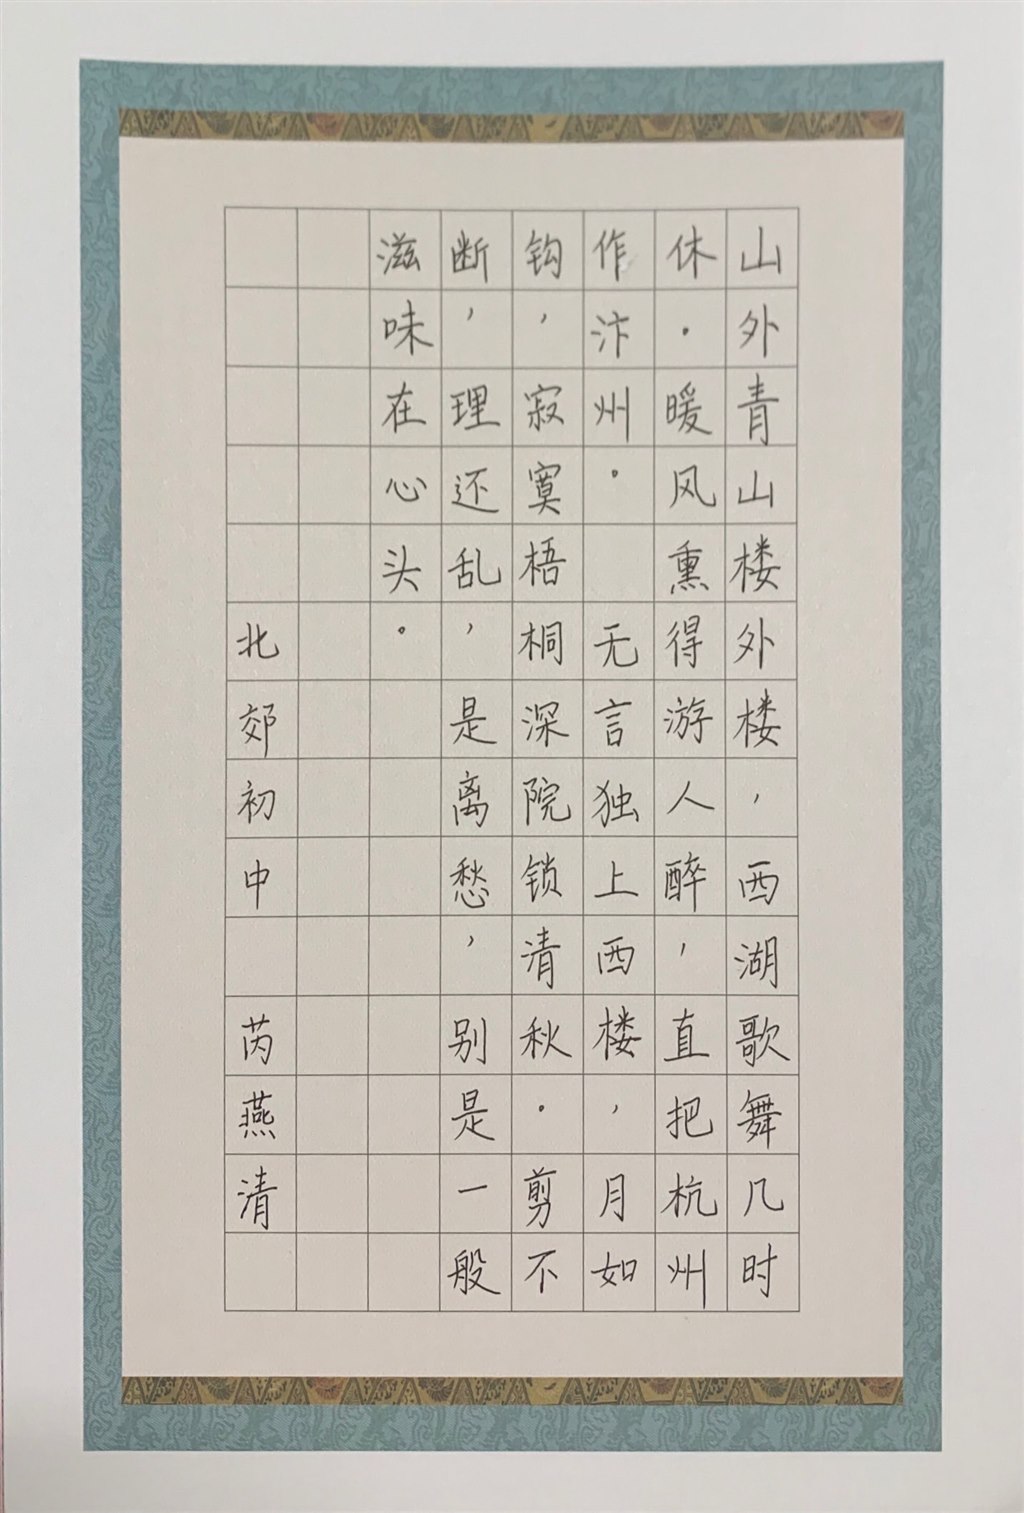 山外青山楼外楼，西湖歌舞几时
休。暖风熏得游人醉，直把杭州
作汴州。 无言独上西楼，月如
钩，寂寞梧桐深院锁清秋。剪不
断，理还乱，是离愁，别是一般
滋味在心头。
北郊初中 芮燕清